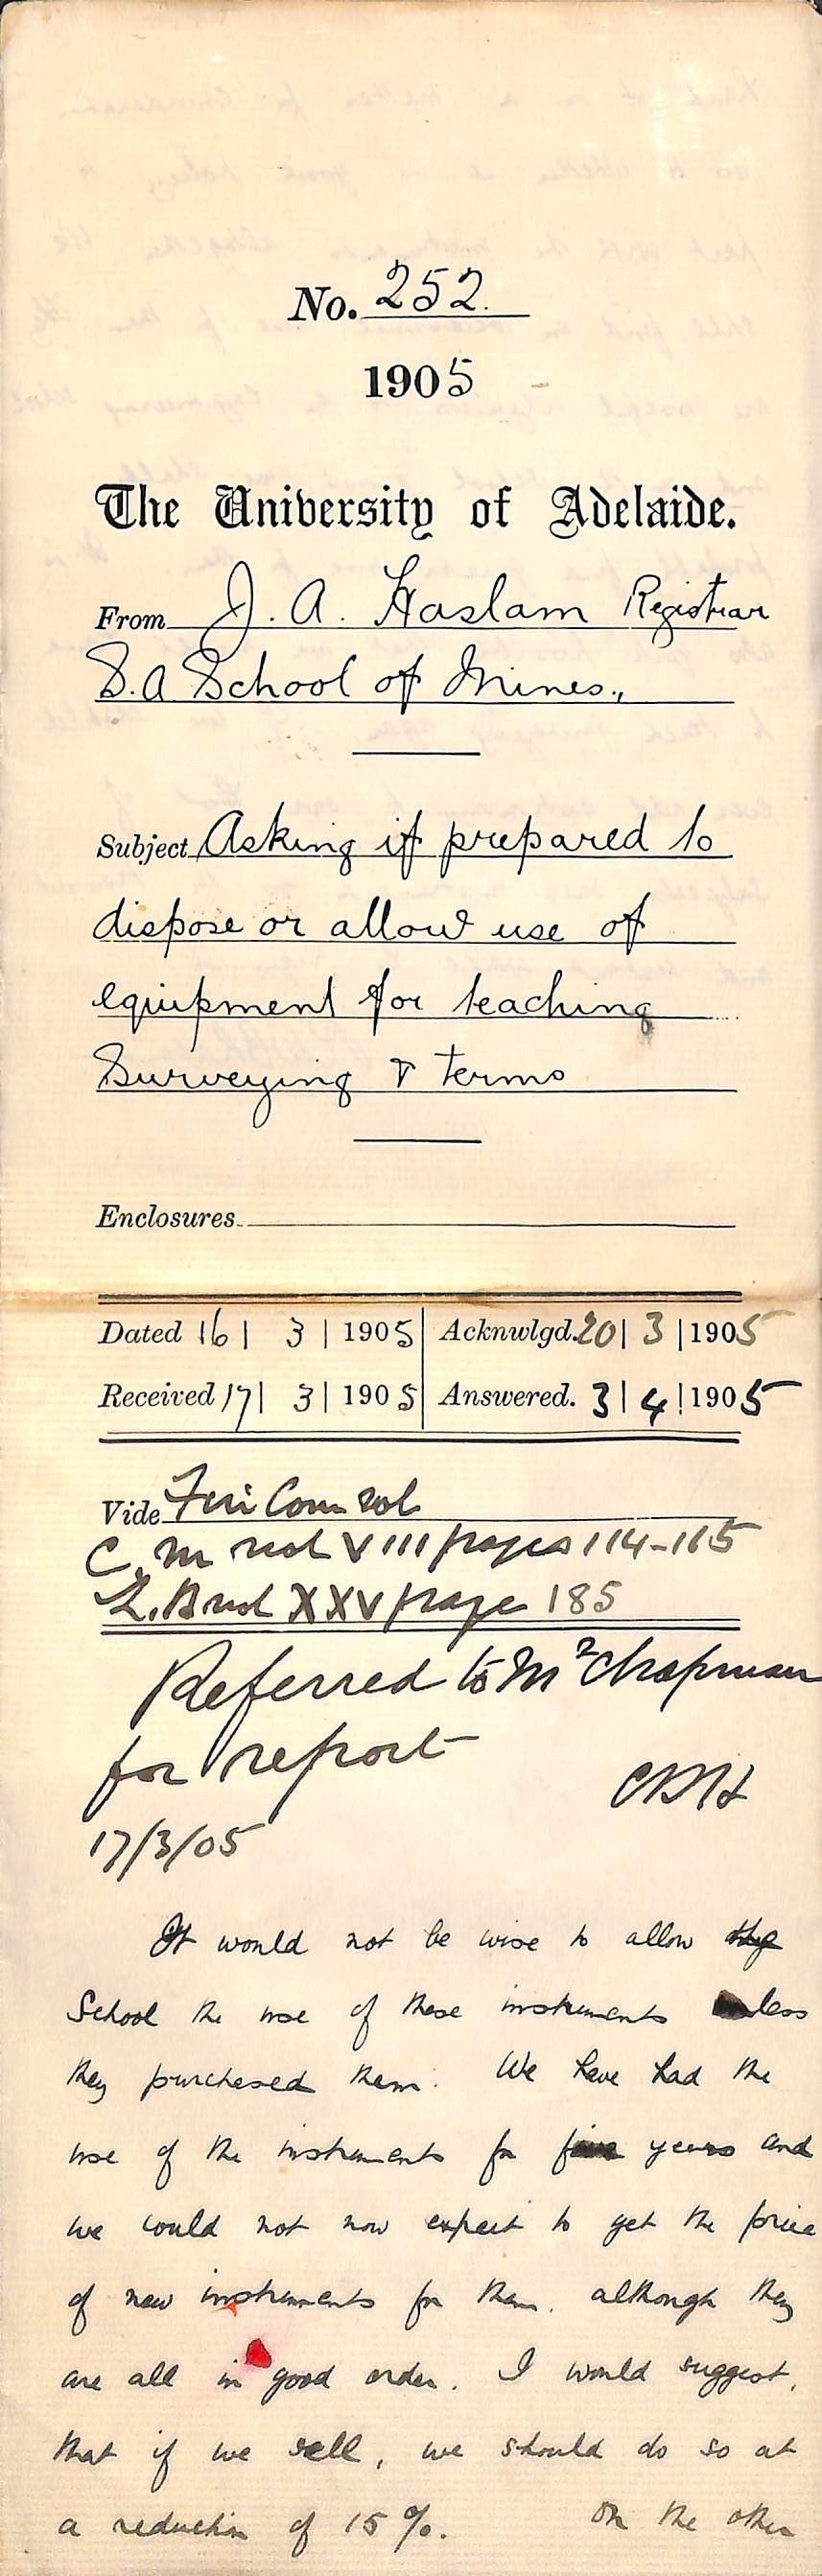 No. 252.
1905
The University of Adelaide.
From J. A. Haslam Registrar
S.A School of Mines.,
Subject Asking if prepared to
dispose or allow use of
equipment for teaching
Surveying & terms
Enclosures
Dated 16 | 3 | 1905 Acknwlgd. 20 | 3 | 1905
Received 17 | 3 | 1905 Answered. 3 | 4 | 1905
Vide Fin Com vol
C. M vol VIII pages 114-115
L.B vol XXV page 185
Referred to Mr Chapman
for report
17/3/05
It would not be wise to allow the
School the use of these instruments unless
they purchased them. We have had the
use of the instruments for five years and
we could not now expect to get the price
of new instruments for them, although they
are all in good order. I would suggest,
that if we sell, we should do so at
a reduction of 15 %. On the other